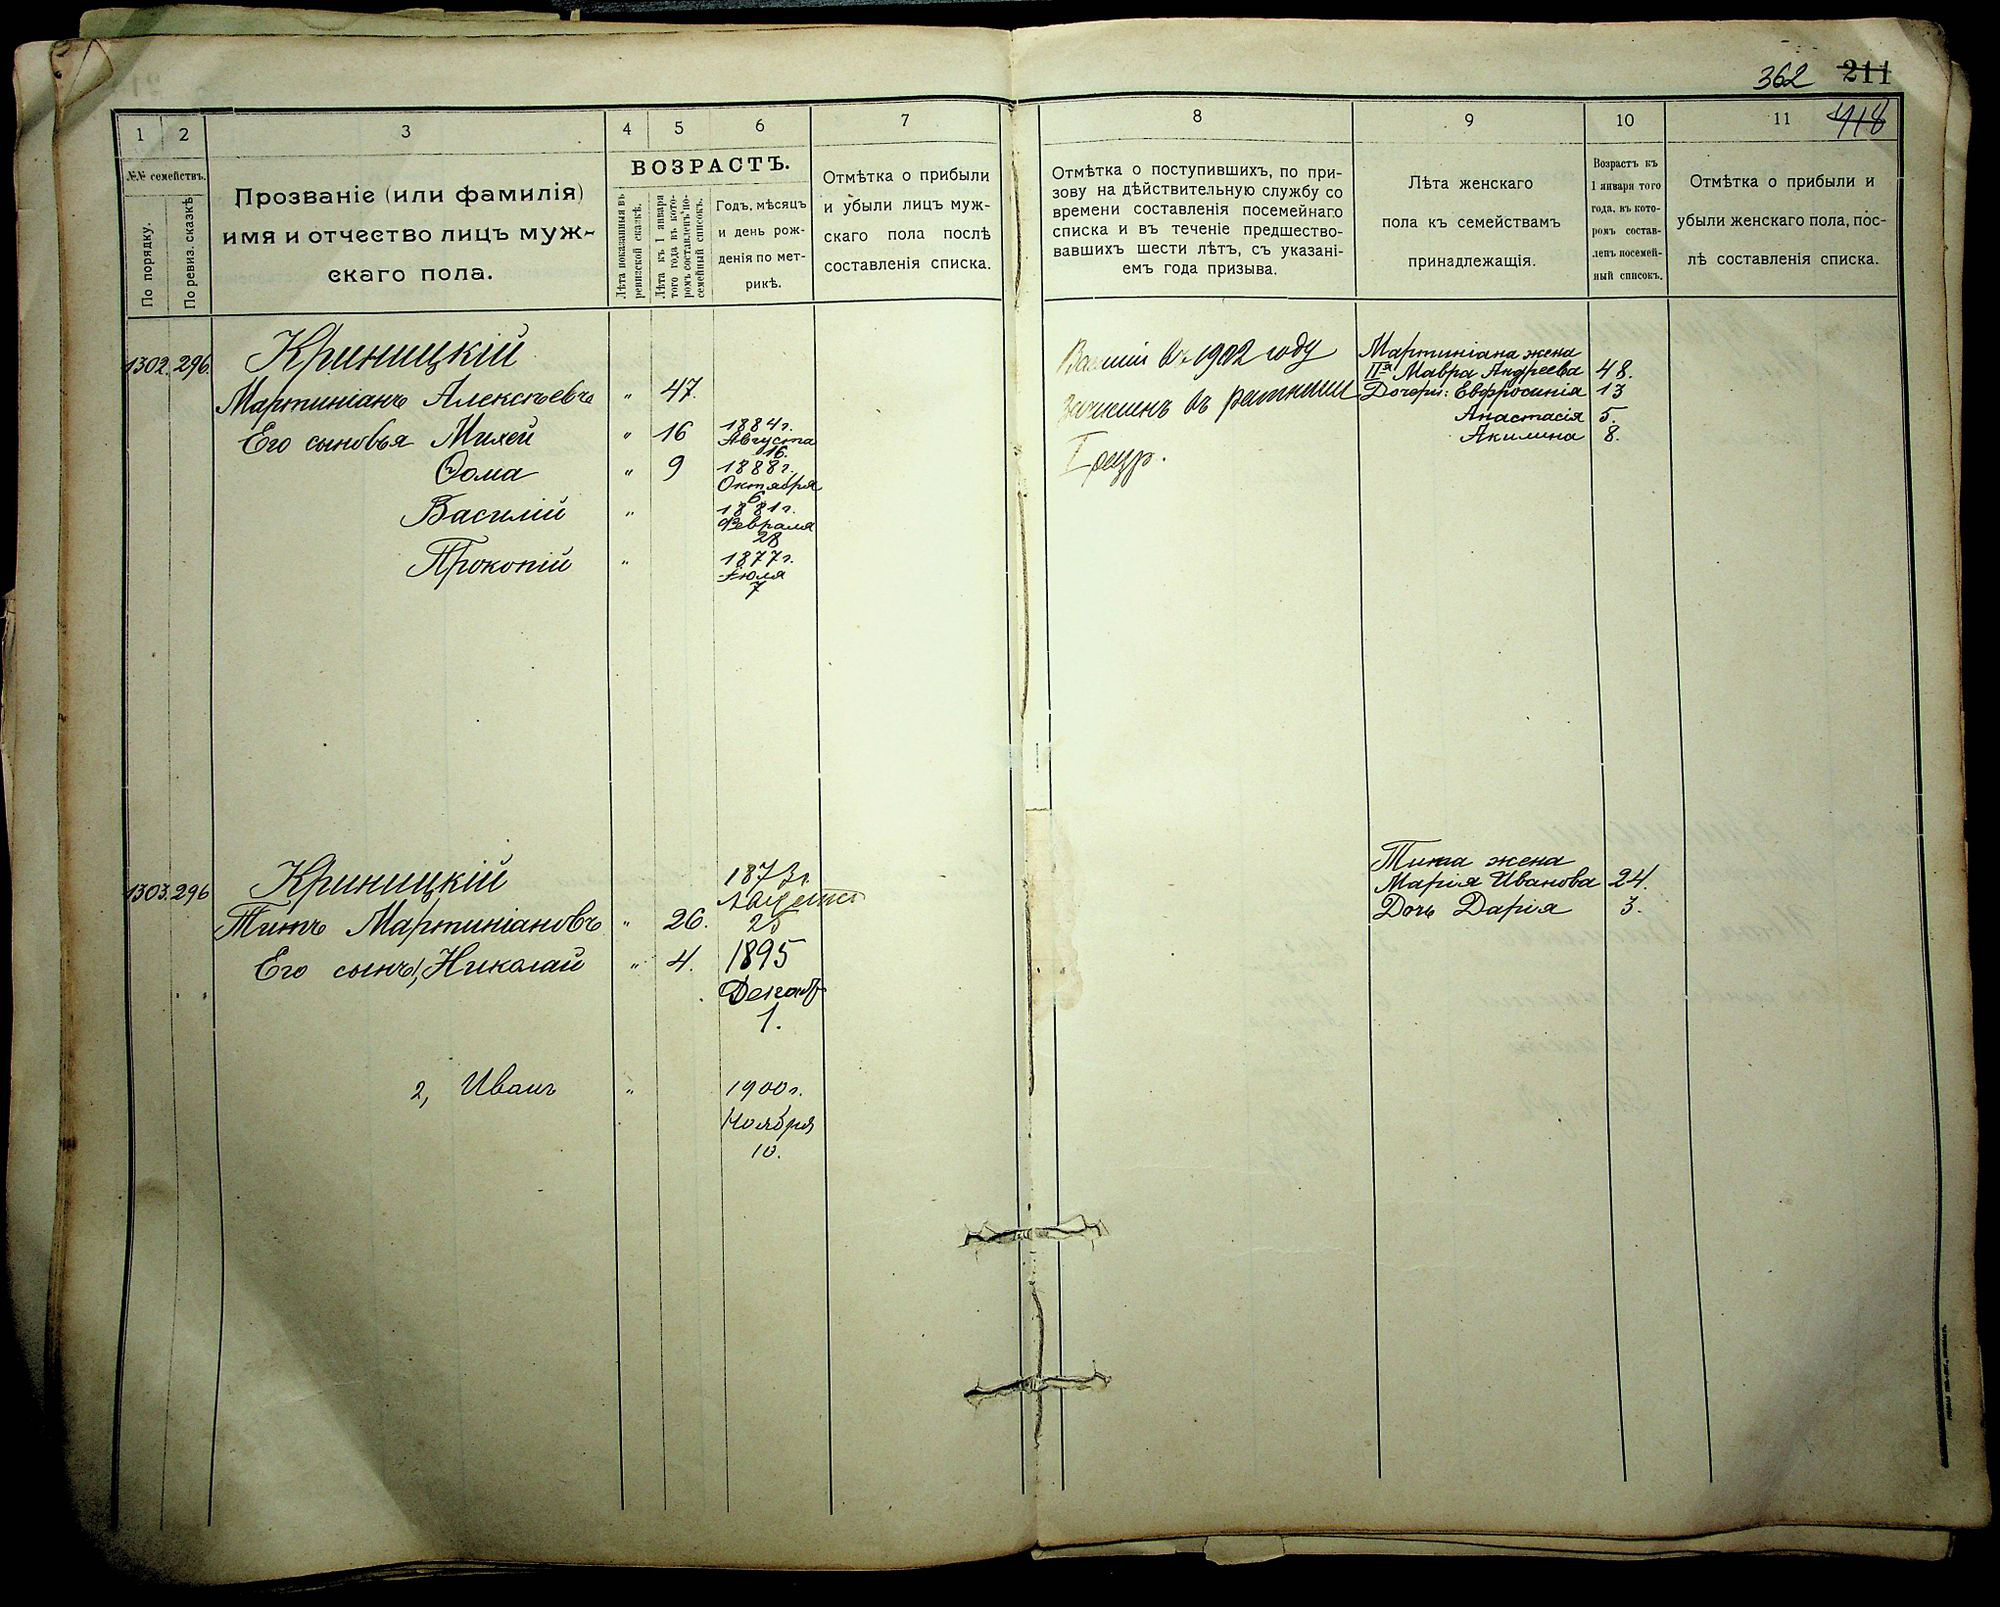 362 211
418
1 2 3 4 5 6 7
№№ семействъ.
По порядку.
По ревиз. сказкѣ
Прозваніе (или фамилія)
имя и отчество лицъ муж-
скаго пола.
ВОЗРАСТЪ.
Лѣта показанныя въ
ревизской сказкѣ.
Лѣта къ 1 января
того года въ кото-
ромъ составленъ по-
семейный списокъ.
Годъ, мѣсяцъ
и день рож-
денія по мет-
рикѣ.
Отмѣтка о прибыли
и убыли лицъ муж-
скаго пола послѣ
составленія списка.
8 9 10 11
Отмѣтка о поступившихъ, по при-
зову на дѣйствительную службу со
времени составленія посемейнаго
списка и въ теченіе предшество-
вавшихъ шести лѣтъ, съ указані-
емъ года призыва.
Лѣта женскаго
пола къ семействамъ
принадлежащія.
Возрастъ къ
1 января того
года, въ кото-
ромъ состав-
ленъ посемей-
ный списокъ.
Отмѣтка о прибыли и
убыли женскаго пола, пос-
лѣ составленія списка.
1302. 296. Криницкій
Мартиніанъ Алексѣевъ " 47.
Его сыновья Михей " 16 1884 г.
Августа
16.
Ѳома " 9 1888 г.
Октября
6
Василій " 1881 г.
Февраля
28
Прокопій " 1877 г.
Іюля
7
Василій въ 1902 году
зачисленъ въ ратники
I разр.
Мартиніана жена
IIя Мавра Андреева 48.
Дочери: Евфросинія 13
Анастасія 5.
Акилина 8.
1303. 296 Криницкій 1873 г.
Августа
Титъ Мартиніановъ " 26. 25
Его сынъ 1, Николай " 4. 1895
Декабр
1.
2, Иванъ " 1900 г.
Ноября
10.
Тита жена
Марія Иванова 24.
Дочь Дарія 3.